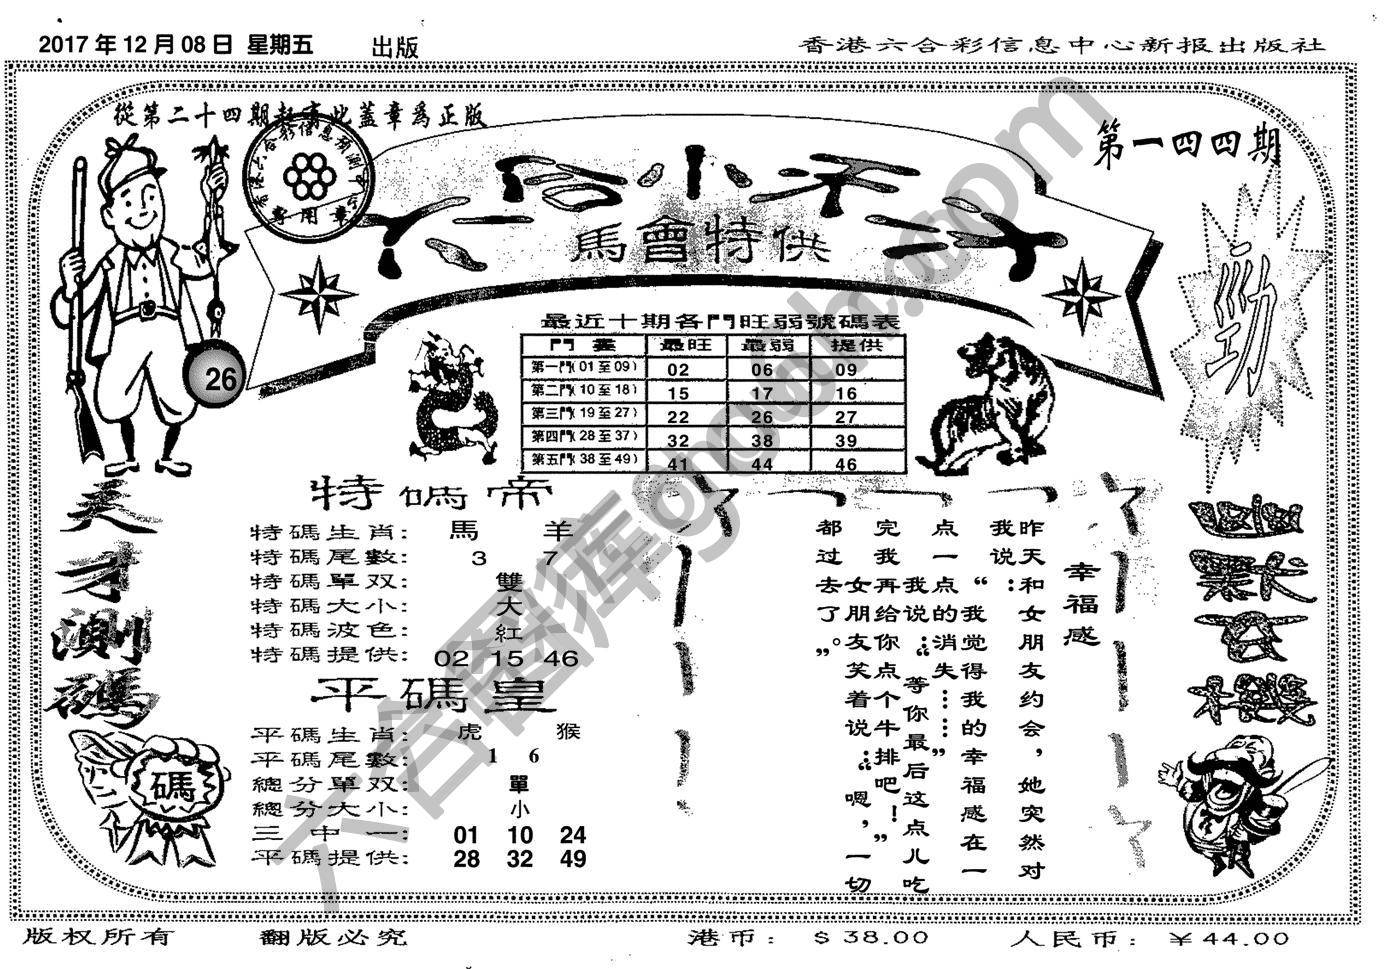 2017 年 12 月 08 日 星期五 出版
香港六合彩信息中心新报出版社
從第二十四期起 此蓋章爲正版
第一四四期
六合小子
馬會特供
專用章
26
勁
最近十期各門旺弱號碼表
門 最旺 最弱 提供
第一門(01至09) 02 06 09
第二門(10至18) 15 17 16
第三門(19至27) 22 26 27
第四門(28至37) 32 38 39
第五門(38至49) 41 44 46
天才測碼
碼
特碼帝
特碼生肖: 馬 羊
特碼尾數: 3 7
特碼單双: 雙
特碼大小: 大
特碼波色: 紅
特碼提供: 02 15 46
平碼皇
平碼生肖: 虎 猴
平碼尾數: 1 6
總分單双: 單
總分大小: 小
三中一: 01 10 24
平碼提供: 28 32 49
幸福感
昨天和女朋友约会,她突然对
我说:“我觉得我的幸福感在一
点一点的消失……”
我说:“等你最后这点儿吃
完我再给你点个牛排吧!”
女朋友笑着说:“嗯,一切
都过去了。”
六合图库 gootk.com
版权所有 翻版必究 港币: $ 38.00 人民币: ¥ 44.00